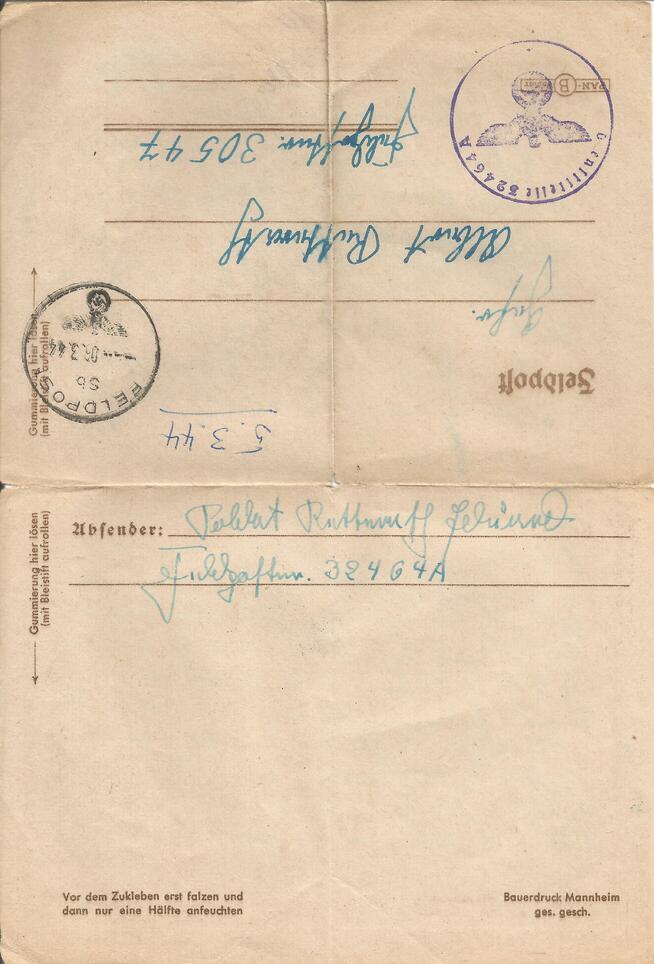 Feldpost
Gefr.
Albert
Feldpostnr. 30547
PAN-B
Dienststelle 32464A
FELDPOST
Sb
06.3.44
5.3.44
Gummierung hier lösen
(mit Bleistift aufrollen)
Absender: Soldat Eduard
Feldpostnr. 32464A
Gummierung hier lösen
(mit Bleistift aufrollen)
Vor dem Zukleben erst falzen und
dann nur eine Hälfte anfeuchten
Bauerdruck Mannheim
ges. gesch.